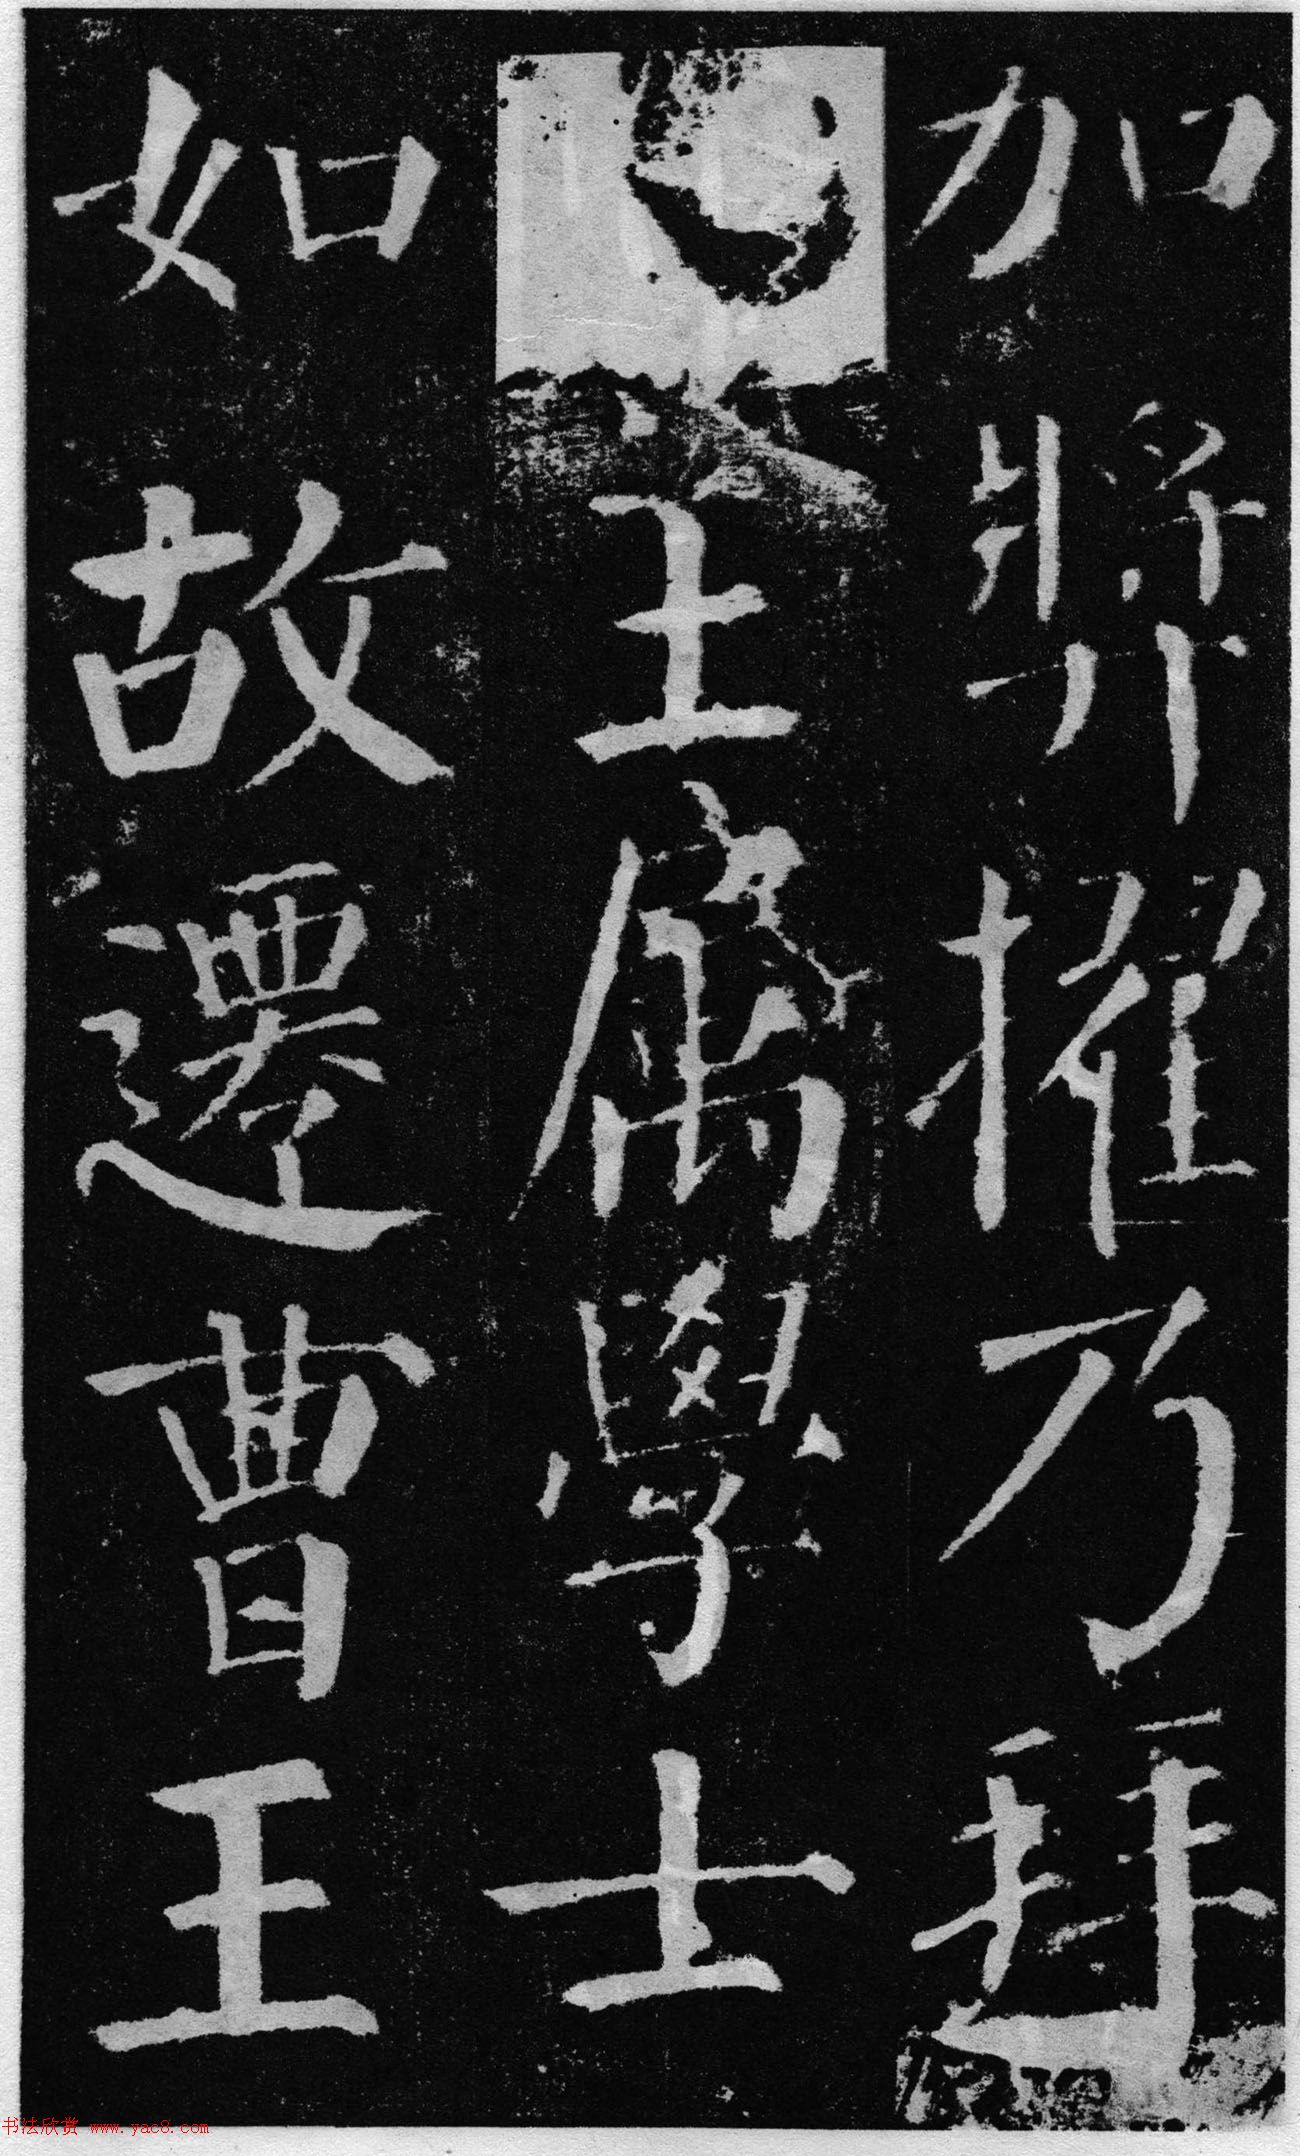 加獎擢乃拜
王屬學士
如故遷曹王
书法欣赏 www.yac8.com